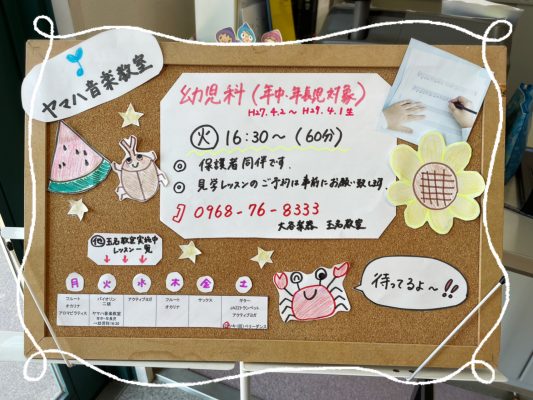 ヤマハ音楽教室
幼児科(年中・年長児対象)
H27.4.2〜H29.4.1生
火 16:30〜(60分)
◎ 保護者同伴です.
◎ 見学レッスンのご予約は事前にお願い致します.
0968-76-8333
大谷楽器 玉名教室
玉名教室実施中
レッスン一覧
↓ ↓ ↓
月 火 水 木 金 土
フルート
オカリナ
アロマピラティス
バイオリン
二胡
ヤマハ音楽教室
アクティブヨガ
フルート
オカリナ
サックス
ギター
JAZZトランペット
アクティブヨガ
待ってるよ〜!!